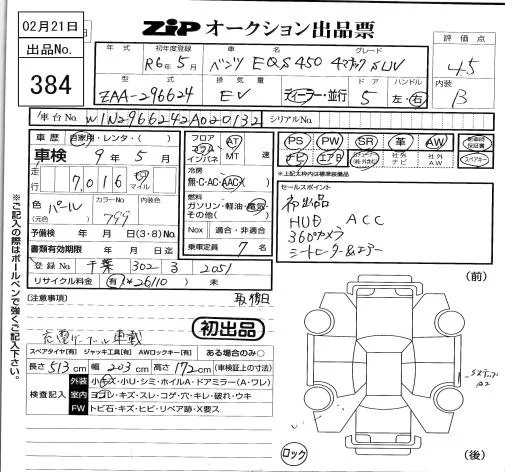 02月21日
出品No.
384
ZIP オークション出品票
年式 初年度登録 車名 グレード 評価点
R6年5月 ベンツ EQS450 4マチック SUV 4.5
型式 排気量 ドア ハンドル 内装
ZAA-296624 EV ディーラー・並行 5 左・右 B
車台No. W1N2966242A020132 シリアルNo.
車歴 自家用・レンタ・( )
車検 9年5月
走行 7,016 キロ マイル
色(元色) パール カラーNo. 799 内装色
予備検 年 月 日(3・8)No.
書類有効期限 年 月 日
登録No. 千葉 302 3 2051
リサイクル料金 有(¥26110) 未
フロア コラム インパネ AT MT 速
冷房 無・C・AC・AAC
燃料 ガソリン・軽油・電気・その他( )
Nox 適合・非適合
乗車定員 7名
PS PW SR 革 AW 新車時保証書
ナビ エアB 社外ナビ 社外AW スペアキー
※上記太枠内は標準装備品
セールスポイント
初出品
HUD ACC
360°カメラ
シートヒーター&エアー
(注意事項)
充電ケーブル車載
初出品
スペアタイヤ[有] ジャッキ工具[有] AWロックキー[有] ある場合のみ○
長さ 513cm 幅 203cm 高さ 172cm (車検証上の寸法)
検査記入
外装 小キズ・小U・シミ・ホイルA・ドアミラー(A・ワレ)
室内 ヨゴレ・キズ・スレ・コゲ・穴・キレ・破れ・ウキ
FW トビ石・キズ・ヒビ・リペア跡・X要ス
(前)
(後)
ロック
※ご記入の際はボールペンで強くご記入下さい。